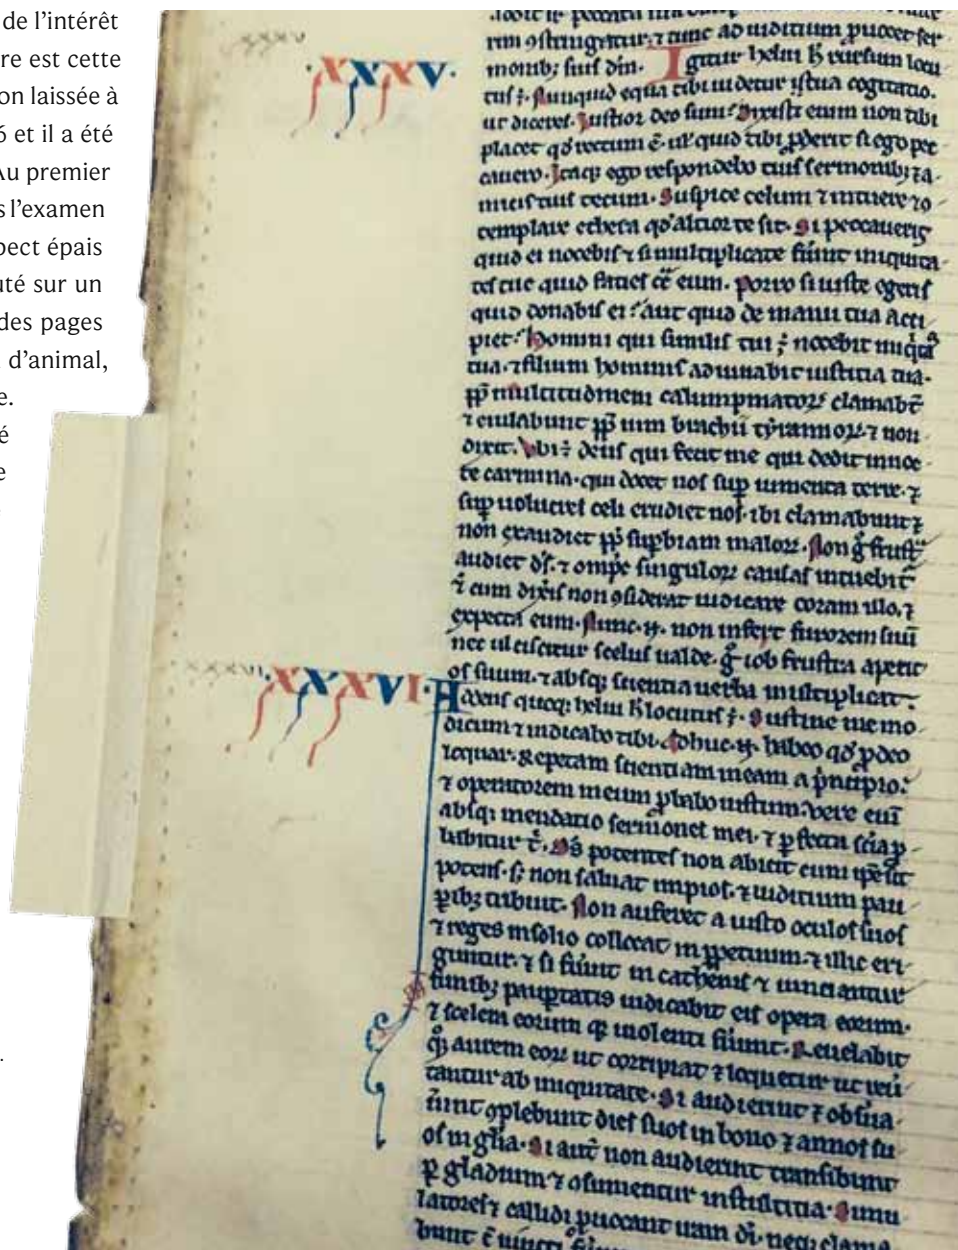 de l’intérêt
re est cette
on laissée à
6 et il a été
Au premier
s l’examen
pect épais
uté sur un
des pages
d’animal,
e.
é
e
xxxv
·XXXV·
rim ꝯstringatur. ⁊ tunc ad iuditium
monibꝫ suis dñm. Igitur heliu h̄ rursum locu
tus ÷. Nunquid equa tibi uidetur ista cogitatio.
ut diceres. Iustior deo sum? Dixisti enim non tibi
placet qd̄ rectum ē. ul' quid tibi ꝓderit si ego pec
cauero. Itaqꝫ ego respondebo tuis sermonibꝫ ⁊ a
micis tuis tecum. Suspice celum ⁊ intuere ⁊ ꝯ
templare ethera qd̄ altior te sit. Si peccaueris
quid ei nocebis ⁊ si multiplicate fũint iniquita
tes tue quid facies cͣ eum. Porro si iuste egeris
quid donabis ei? aut quid de manu tua acci
piet? Homini qui similis tui ÷ nocebit iniqͥtas
tua. ⁊ filium hominis adiuuabit iustitia tua.
ꝓp̄ multitudinem calumpniatoꝝ clamabt̄
⁊ eiulabunt ꝓp̄ uim brachii tyrannoꝝ. ⁊ non
dixit. Vbi ÷ deus qui fecit me qui dedit in noc
te carmina. qui docet nos suꝑ iumenta terre. ⁊
suꝑ uolucres celi erudiet nos. ibi clamabunt ⁊
non exaudiet ꝓp̄ suꝑbiam maloꝝ. Non gͦ frustͣ
audiet ds̄. ⁊ omp̄s singuloꝝ causas intuebit᷑
⁊ cum dixis non ꝯsiderat iudicare coram illo. ⁊
expecta eum. Nunc .n. non infert furorem suũ
nec ulciscitur scelus ualde. gͦ iob frustra aperit
xxxvi
·XXXVI·
os suum. ⁊ absqꝫ scientia uerba multiplicat.
Addens quoqꝫ heliu h̄ locutus ÷. Sustine me mo
dicum ⁊ indicabo tibi. Adhuc .n. habeo qd̄ ꝓ deo
loquar. Repetam scientiam meam a pͥncipio.
⁊ operatorem meum ꝓbabo iustum. Vere eni̅
absqꝫ mendacio sermones mei. ⁊ ꝑfecta scīa ꝓ
babitur t̄. Ds̄ potentes non abicit cum ip̄e sit
potens. sꝫ non saluat impios. ⁊ iuditium pau
ꝑibꝫ tribuit. Non auferet a iusto oculos suos
⁊ reges in solio collocat in ꝑpetuum. ⁊ illic eri
guntur. ⁊ si fũint in cathenis ⁊ uinciantur
funibꝫ pauꝑtatis indicabit eis opera eorum.
⁊ scelera eorum qꝫ uiolenti fũint. Reuelabit
qꝫ aurem eoꝝ ut corripiat ⁊ loquetur ut reũ
tantur ab iniquitate. Si audierint ⁊ obs̄ua
ũint ꝯplebunt dies suos in bono ⁊ annos su
os in gl̄ia. Si aut̄ non audierint transibunt
ꝑ gladium ⁊ ꝯsumentur in stultitia. Simu
latores ⁊ callidi puocant iram dī. neqꝫ clama
bunt c̄ uincti